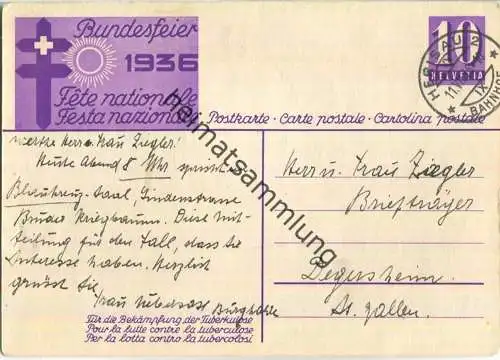 Bundesfeier
1936
Fête nationale
Festa nazionale
10
HELVETIA
HERISAU
BAHNHOF
Postkarte · Carte postale · Cartolina postale
Werthe Herr u. Frau Ziegler!
Heute Abend 8 Uhr spricht
Blaukreuz-Saal, Lindenstrasse
Bruder Kriegbaum. Diese Mit-
teilung für den Fall, dass Sie
Interesse haben. Herzlich
grüsst Sie
Frau
Für die Bekämpfung der Tuberkulose
Pour la lutte contre la tuberculose
Per la lotta contro la tubercolosi
Herrn u. Frau Ziegler
Briefträger
Degersheim
St. Gallen.
heimatsammlung